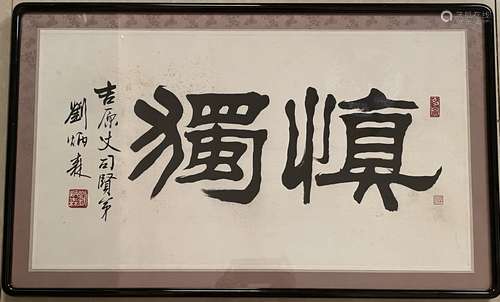 慎獨
吉原丈司賢弟
劉炳森